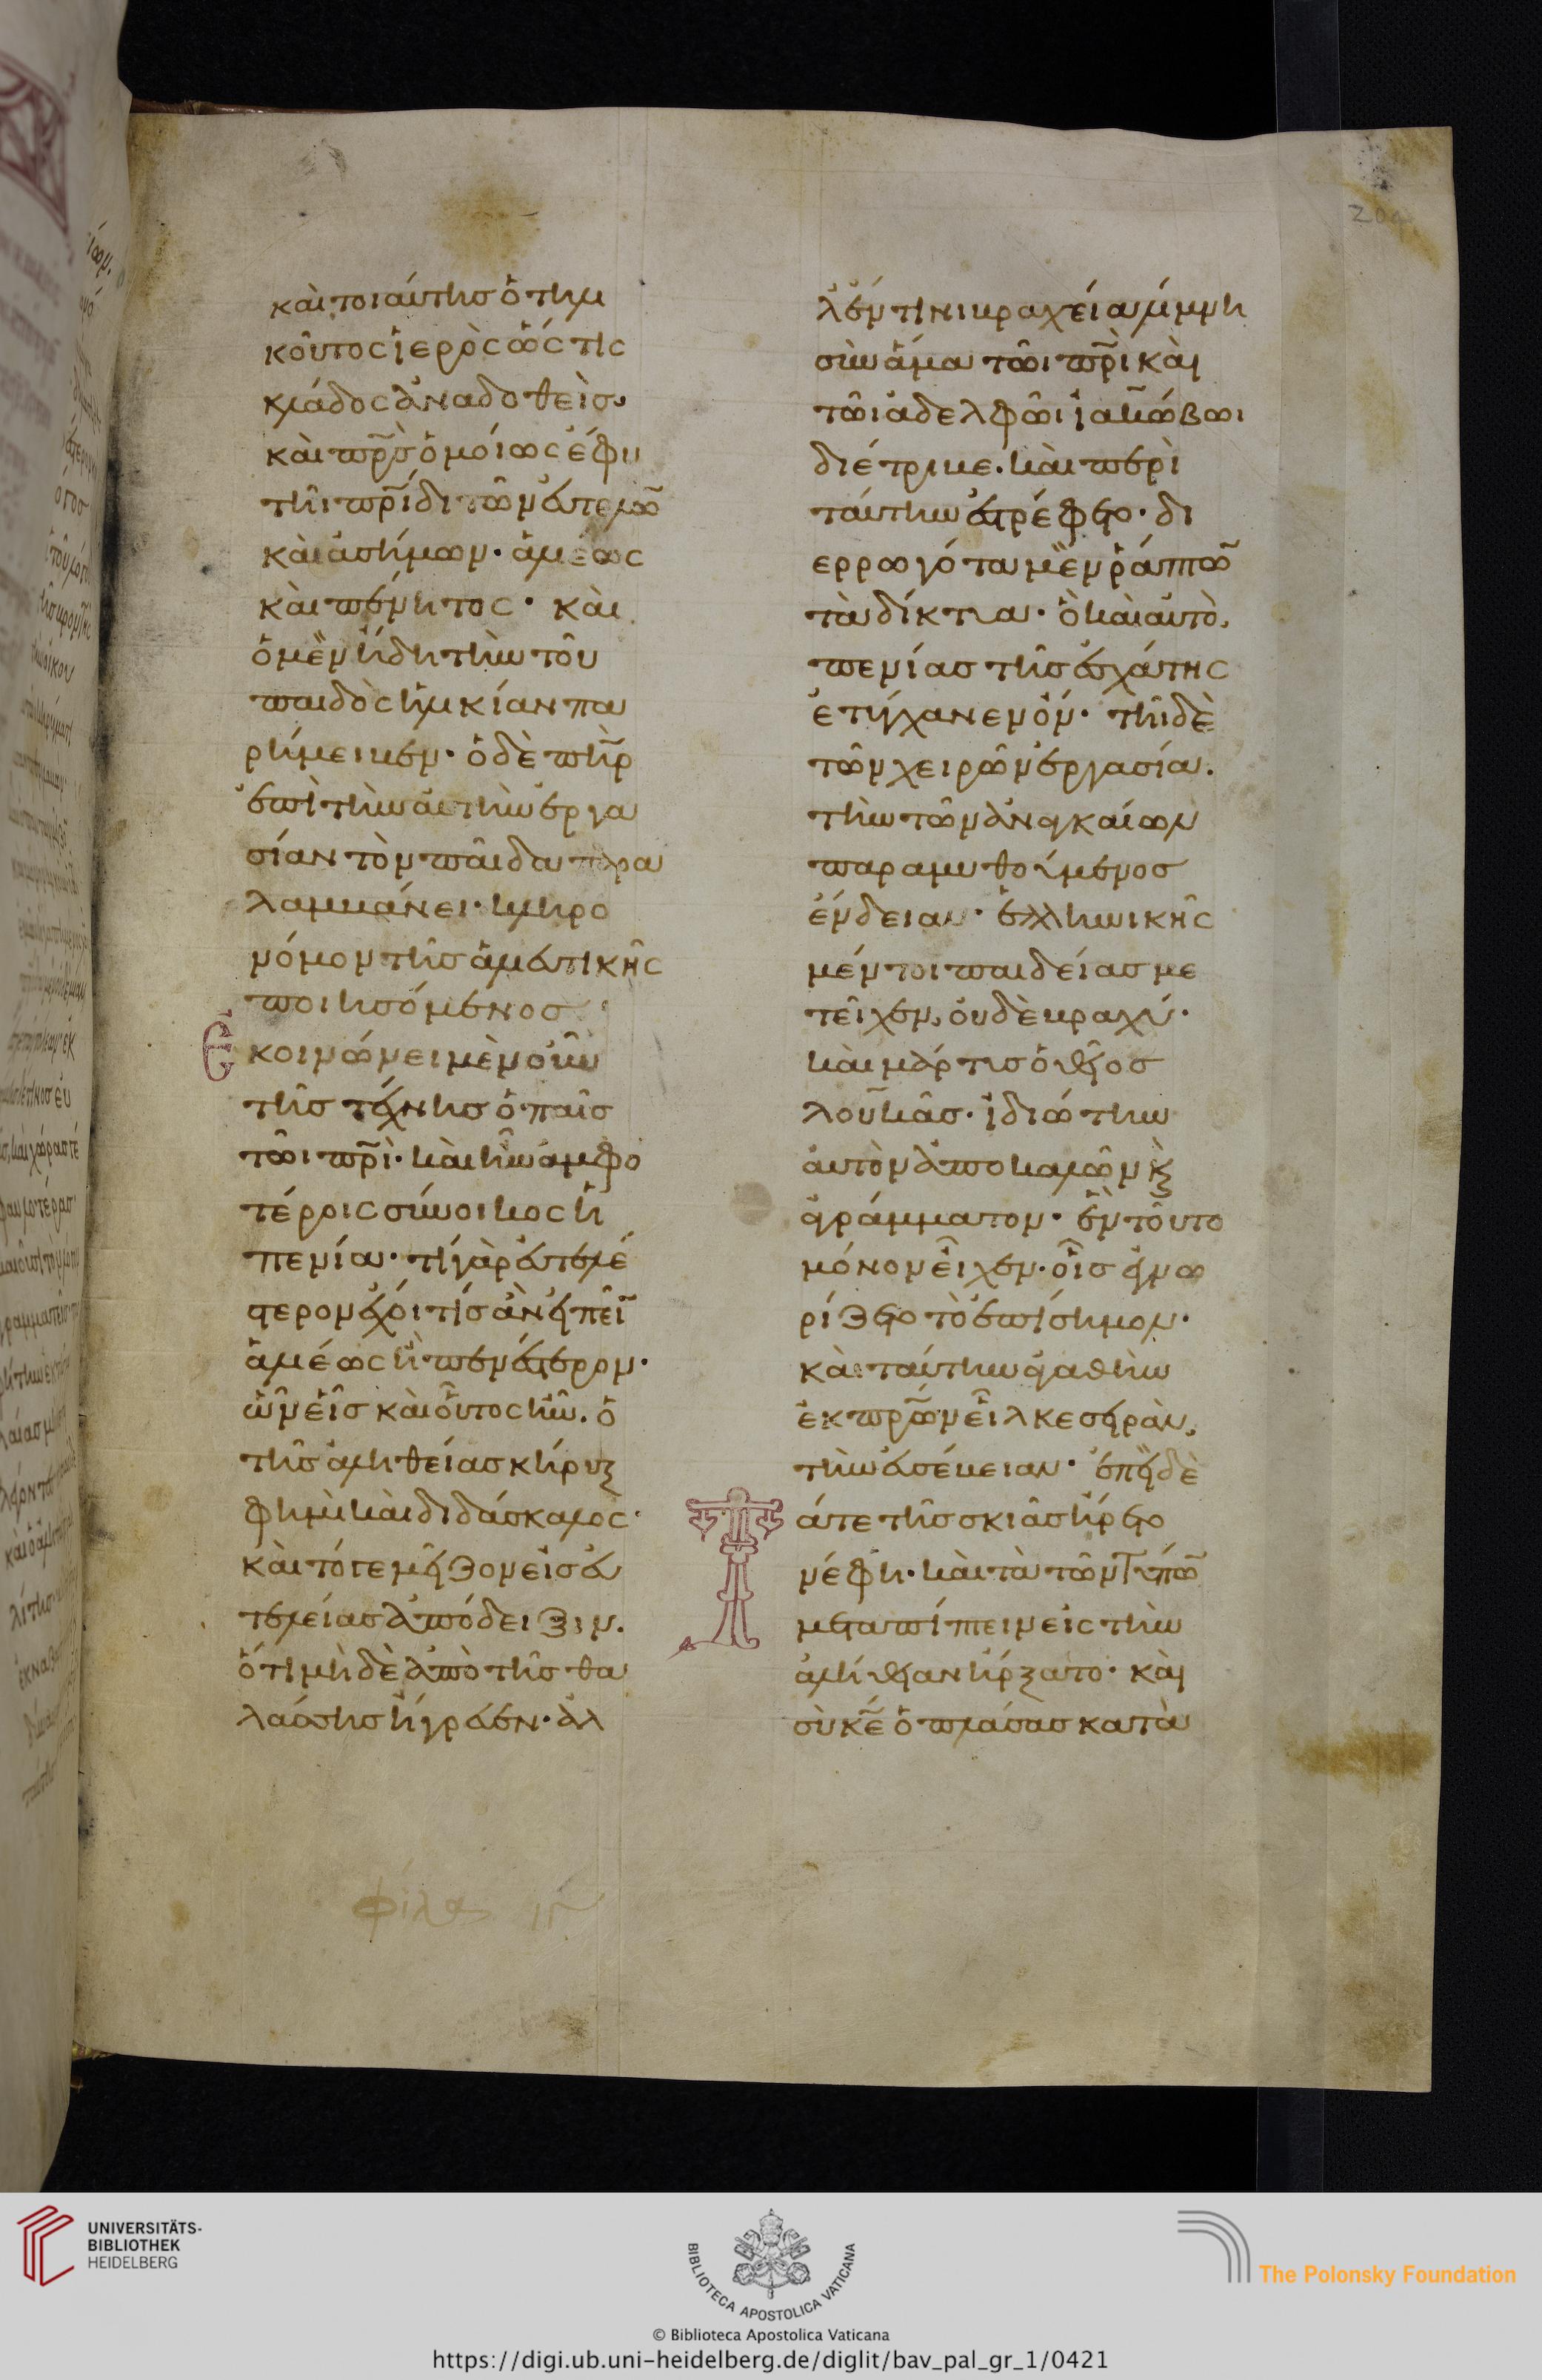 καὶ τοιαύτησ ὁ τηλι
κοῦτος ἱερὸς ὥς τις
κλάδος ἀναδοθεὶσ,
καὶ πρ̅σ̀ ὁμοίως ἔφυ
τῆι πρ̅ίδι τῶν εὐτελῶ̅
καὶ ἀσήμων· ἁλιέως
καὶ πένητος· καὶ
ὁ μὲν ἤδη τὴν τοῦ
παιδὸς ἡλικίαν πα
ρήμειβεν· ὁ δὲ πη̅̀ρ
ἐπὶ τὴν αὐτὴν ἐργα
σίαν τὸν παῖδα παρα
λαμβάνει· κληρο
νόμον τῆσ ἁλιευτικῆς
ποιησόμενος·
Ἐκοινώνει μὲν οὖν
τῆσ τέχνησ ὁ παῖσ
τῶι πρ̅ὶ· καὶ ἦν ἀμφο
τέροις σύνοικος ἡ
πενία· τί γὰρ εὐτελέ
στερον ἔχοι τίσ ἂν εἰπεῖ̅
ἁλιέως ἢ πενέστερον·
ὧν εἷσ καὶ οὗτος ἦν. ὁ
τῆσ ἀληθείασ κῆρυξ
φημὶ καὶ διδάσκαλος·
καὶ τότε μεῖζον εἰσ εὐ
τελείασ ἀπόδειξιν.
ὅτι μὴ δὲ ἀπὸ τῆσ θα
λάσσησ ἤγρευεν· ἀλ
λ' ἔν τινι βραχεία λίμνη
σὺν ἅμα τῶι πρ̅ὶ καὶ
τῶι ἀδελφῶι ἰακώβωι
διέτριβε. καὶ περὶ
ταύτην ἐστρέφετο· δι
ερρωγότα μὲν ῥάπτω̅
τὰ δίκτυα· ὃ καὶ αὐτὸ,
πενίασ τῆσ ἐσχάτης
ἐτύγχανεν ὄν· τῆι δὲ
τῶν χειρῶν ἐργασία.
τὴν τῶν ἀναγκαίων
παραμυθούμενοσ
ἔνδειαν· ἑλληνικῆς
μέντοι παιδείασ με
τεῖχεν, οὐδὲ βραχύ·
καὶ μάρτυσ ὁ θεῖοσ
λουκᾶσ· ἰδιώτην
αὐτὸν ἀποκαλῶν κ̀
ἀγράμματον· ἓν τοῦτο
μόνον εἶχεν· οἷσ ἐγνω
ρίζετο τὸ ἐπίσημον·
καὶ ταύτην ἀγαθὴν
ἐκ πρ̅ων εἷλκε σειρὰν,
τὴν εὐσέβειαν· ἐπεὶ δὲ
Τάτε τῆσ σκιᾶσ ἤρετο
νέφη· καὶ τὰ τῶν τύπω̅
μεταπίπτειν εἰς τὴν
ἀλήθειαν ἤρξατο· καὶ
σὺ κ̅ε ὁ πλάσασ κατὰ
UNIVERSITÄTS-
BIBLIOTHEK
HEIDELBERG
BIBLIOTECA APOSTOLICA VATICANA
© Biblioteca Apostolica Vaticana
The Polonsky Foundation
https://digi.ub.uni-heidelberg.de/diglit/bav_pal_gr_1/0421